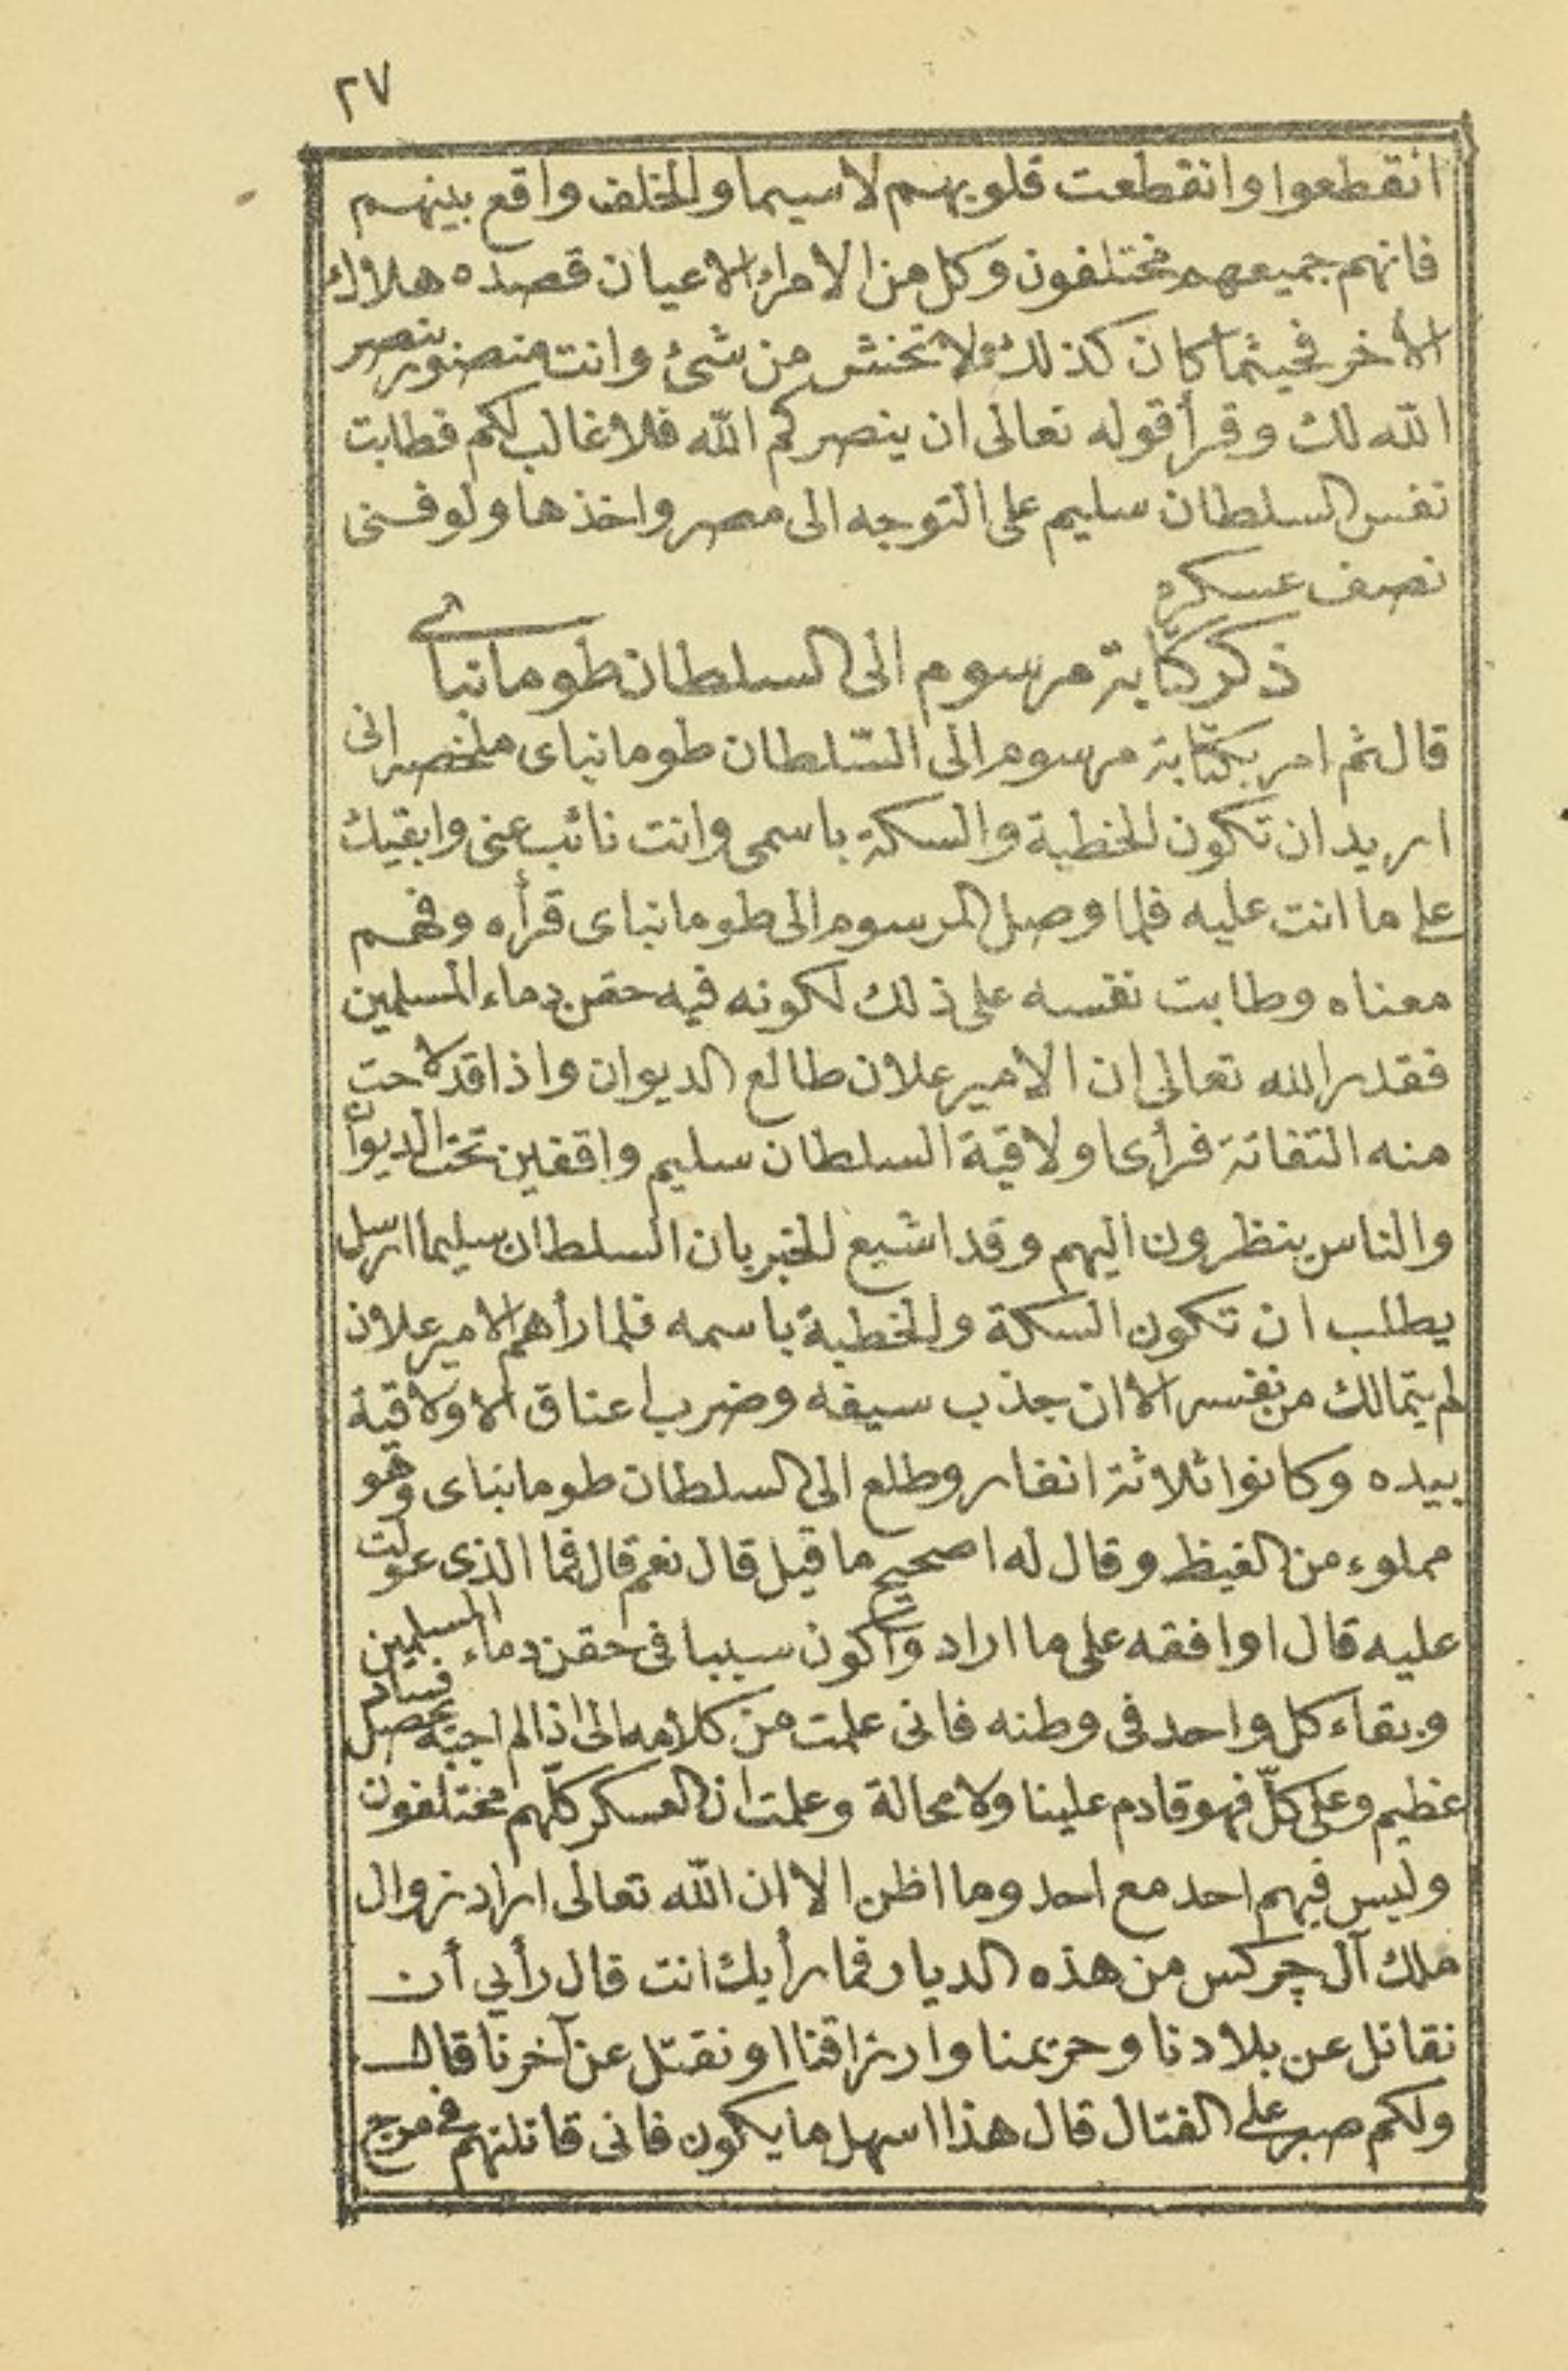 ٢٧
انقطعوا وانقطعت قلوبهم لاسيما والخلف واقع بينهم
فانهم جميعهم مختلفون وكل من الامراء الاعيان قصده هلاك
الآخر فحيثما كان كذلك فلا تخش من شئ وانت منصور بنصر
الله لك وقرأ قوله تعالى ان ينصركم الله فلا غالب لكم فطابت
نفس السلطان سليم على التوجه الى مصر واخذها ولو فنى
نصف عسكره
ذكر كتابة مرسوم الى السلطان طومانباى
قال ثم امر بكتابة مرسوم الى السّلطان طومانباى ملخصه انى
اريد ان تكون الخطبة والسكة باسمى وانت نائب عنى وابقيك
على ما انت عليه فلما وصل المرسوم الى طومانباى قرأه وفهم
معناه وطابت نفسه على ذلك لكونه فيه حقن دماء المسلمين
فقدر الله تعالى ان الامير علان طالع الديوان واذا قد لاحت
منه التفاتة فرأى اولاقية السلطان سليم واقفين تحت الديوان
والناس ينظرون اليهم وقد اشيع الخبر بان السلطان سليما ارسل
يطلب ان تكون السكة والخطبة باسمه فلما رأهم الامير علان
لم يتمالك من نفسه الا ان جذب سيفه وضرب اعناق الاولاقية
بيده وكانوا ثلاثة انفار وطلع الى السلطان طومانباى وهو
مملوء من الغيظ وقال له اصحيح ما قيل قال نعم قال فما الذى عولت
عليه قال اوافقه على ما اراد واكون سببا فى حقن دماء المسلمين
وبقاء كل واحد فى وطنه فانى علمت من كلامه انى اذا لم اجبه تحصل فساد
عظيم وعلى كلّ فهو قادم علينا ولا محالة وعلمت ان العسكر كلّهم مختلفون
وليس فيهم احد مع احد وما اظن الا ان الله تعالى اراد زوال
ملك آل چركس من هذه الديار فما رأيك انت قال رأيي أن
نقاتل عن بلادنا وحريمنا وارزاقنا او نقتل عن آخرنا قال
ولكم صبر على القتال قال هذا اسهل ما يكون فانى قاتلتهم فى مرج